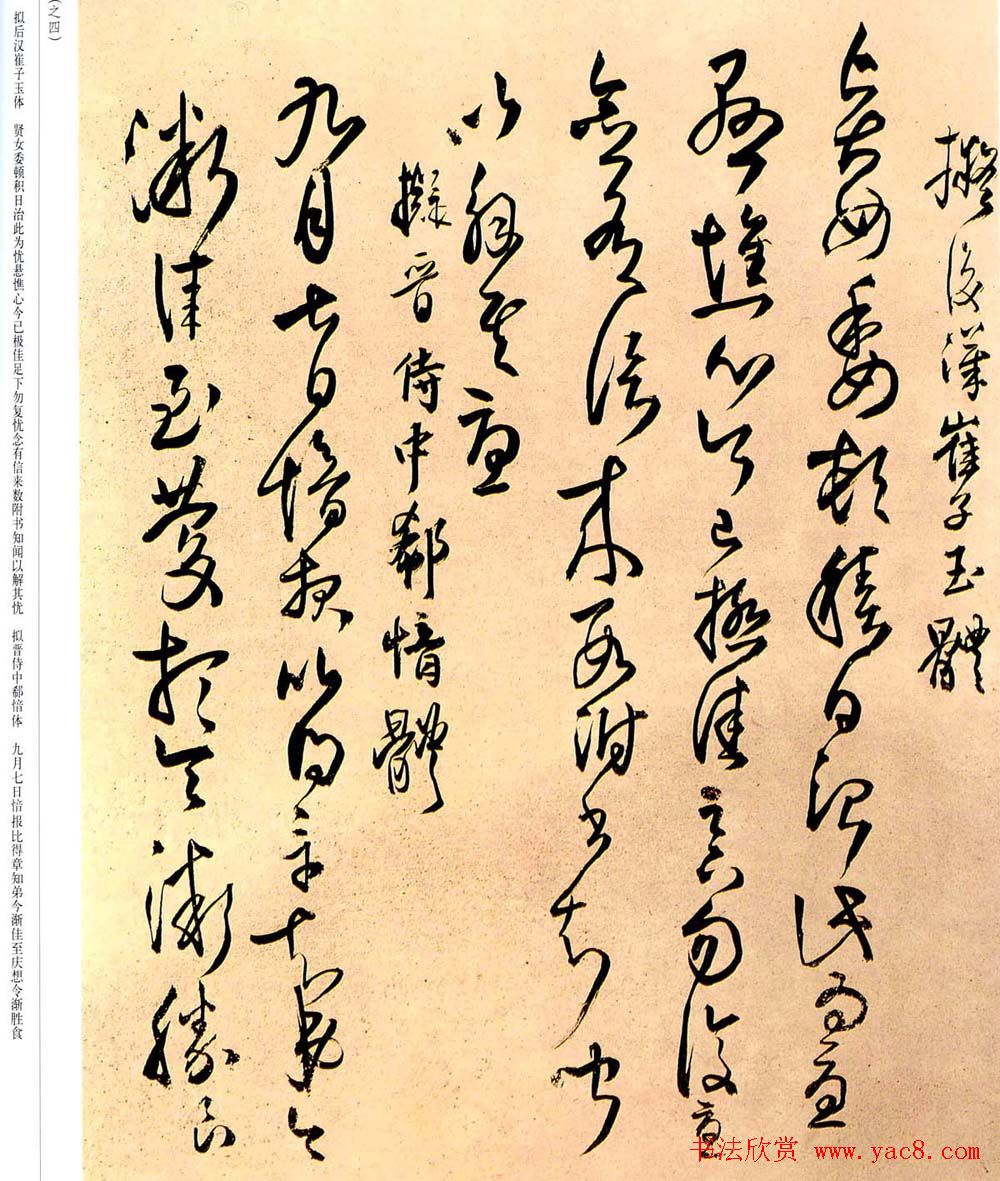 擬後漢崔子玉體
賢女委頓積日治此為憂
懸憔心今已極佳足下勿復憂
念有信來數附書知聞
以解其憂
擬晉侍中郗愔體
九月七日愔報比得章知弟今
漸佳至慶想令漸勝食
(之四)
拟后汉崔子玉体 贤女委顿积日治此为忧悬憔心今已极佳足下勿复忧念有信来数附书知闻以解其忧 拟晋侍中郗愔体 九月七日愔报比得章知弟今渐佳至庆想令渐胜食
书法欣赏 www.yac8.com